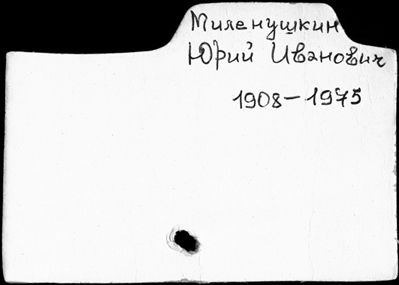 Миленушкин
Юрий Иванович
1908-1975